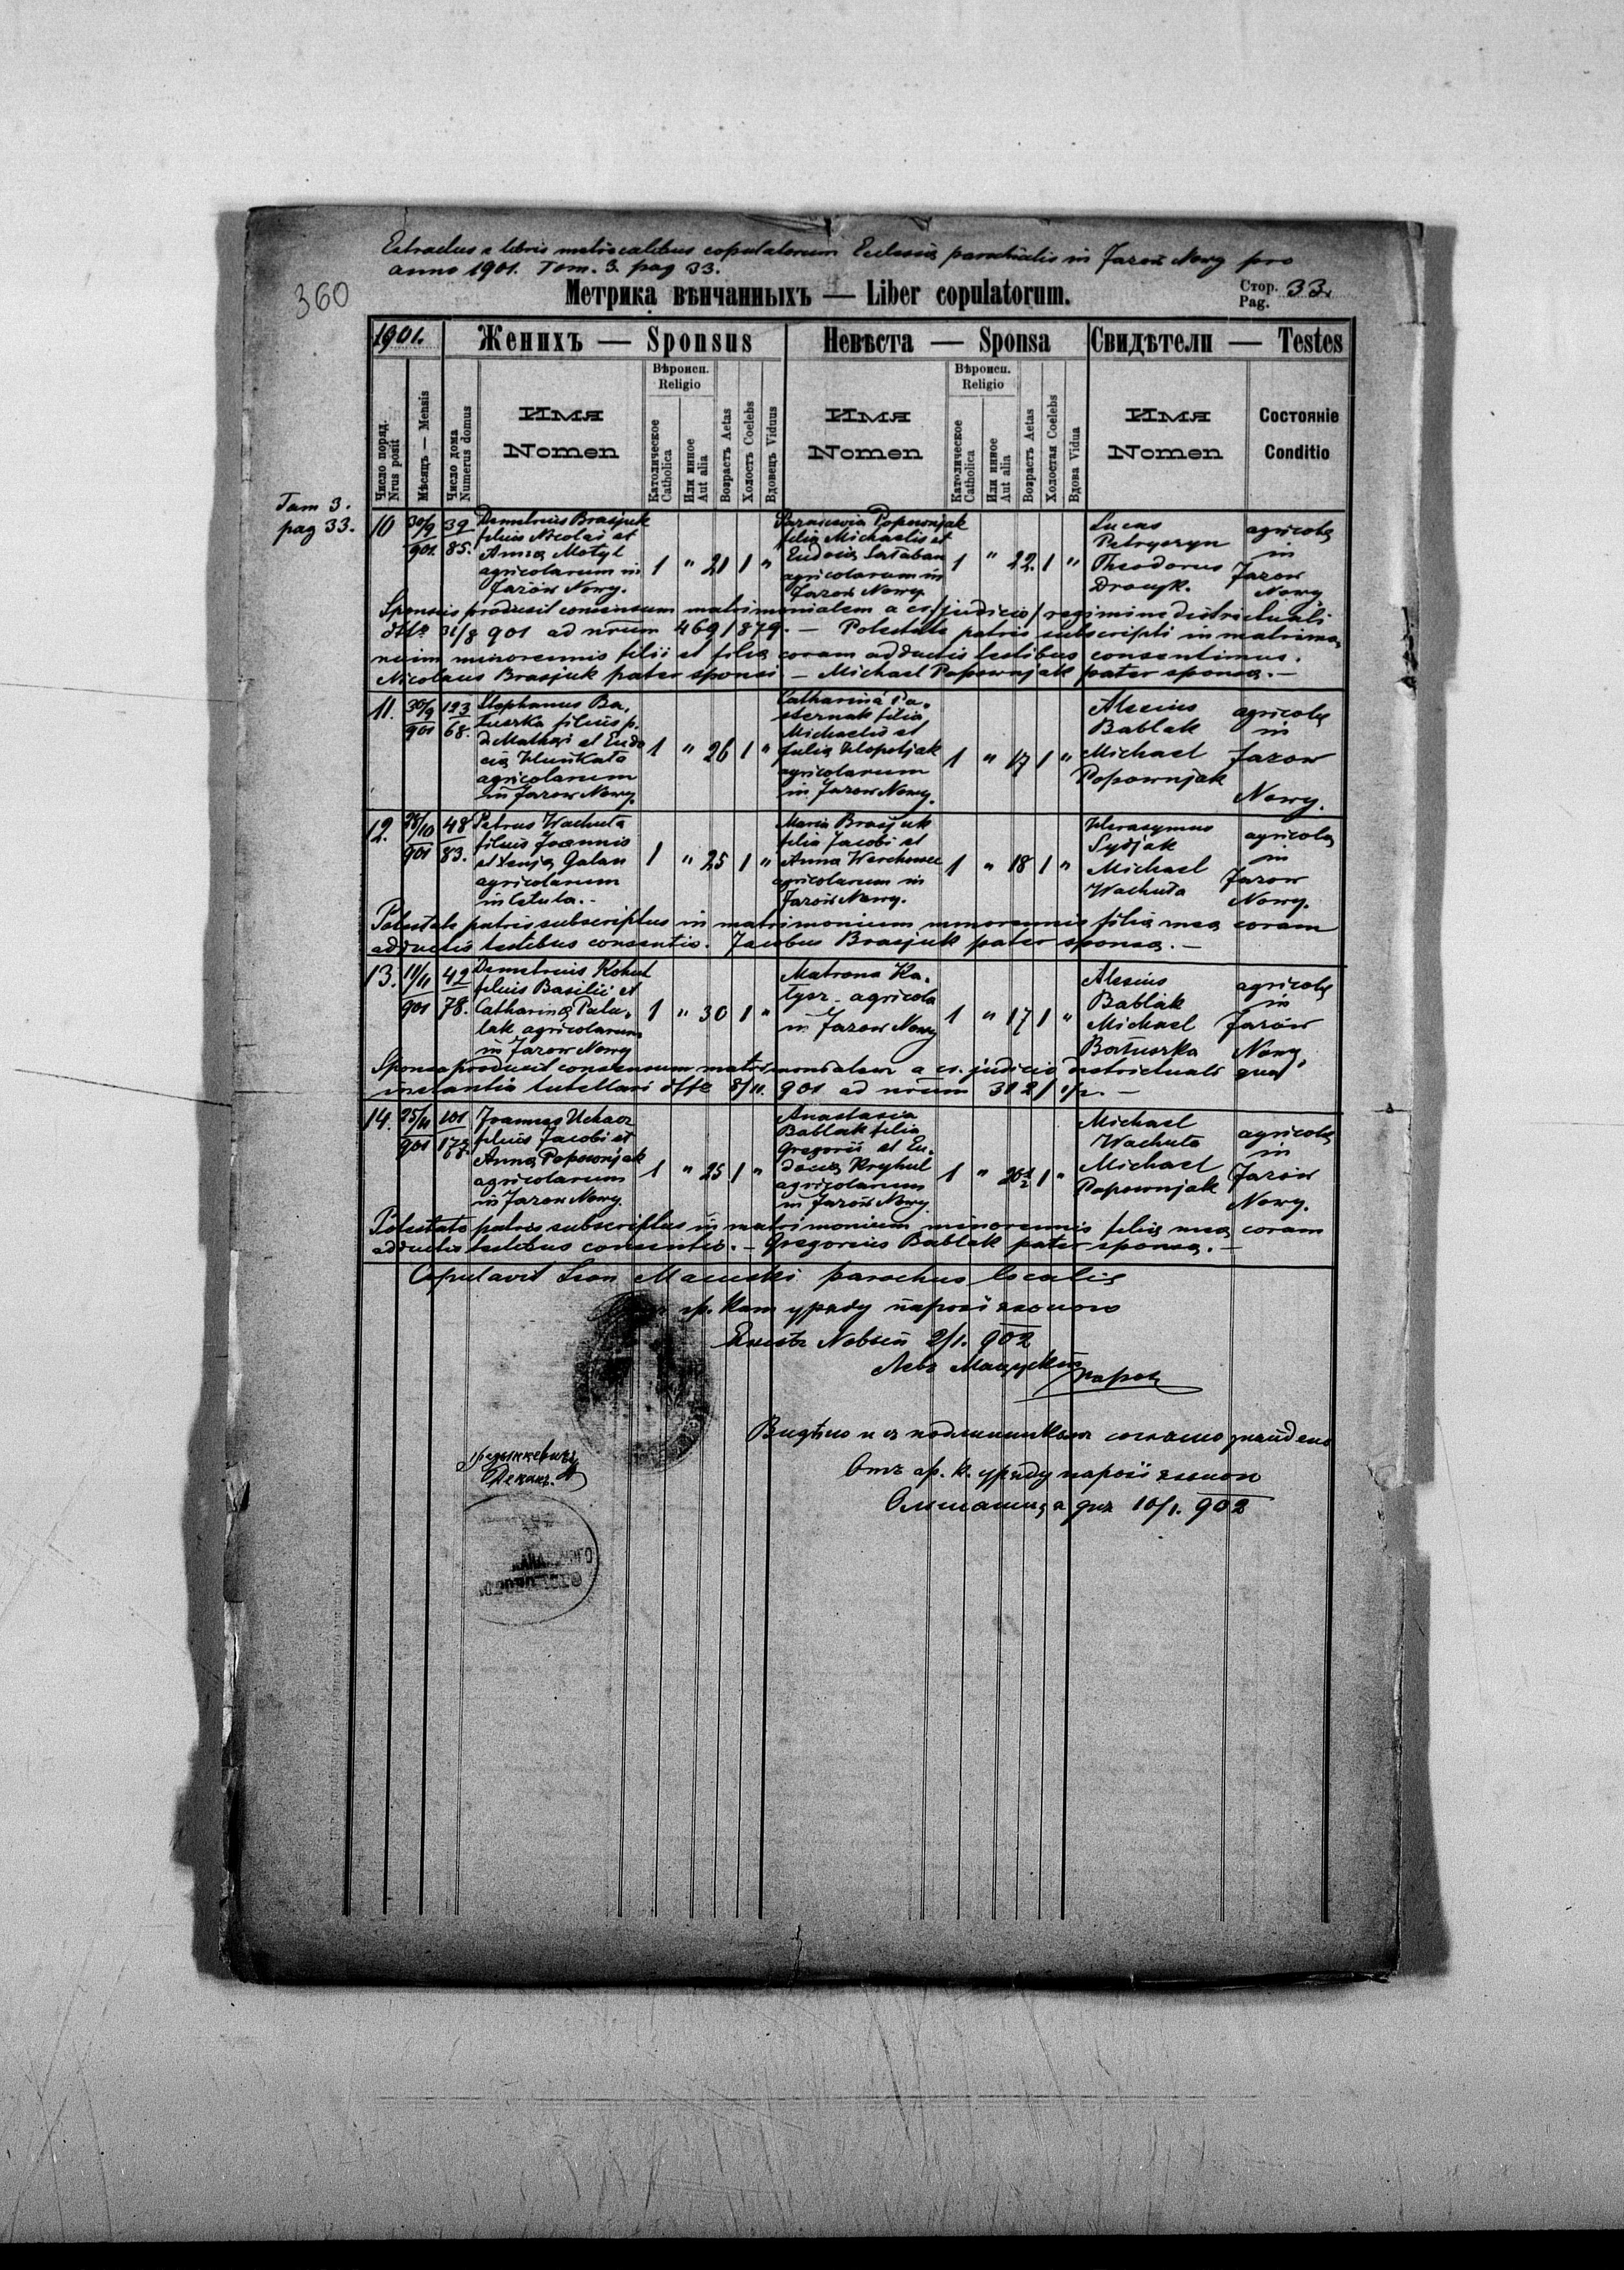 Extractus e libris metricalibus copulatorum Ecclesiæ parochialis in Jazów Nowy pro
anno 1901. Tom. 3. pag 33.
360
Метрика вѣнчанныхъ — Liber copulatorum.
Стор. Pag. 33.
1901.
Женихъ — Sponsus
Невѣста — Sponsa
Свидѣтели — Testes
Число поряд. Nrus posit
Мѣсяцъ — Mensis
Число дома Numerus domus
Имя Nomen
Вѣроисп. Religio
Католическое Catholica
Или инное Aut alia
Возрастъ Aetas
Холостъ Coelebs
Вдовецъ Viduus
Имя Nomen
Вѣроисп. Religio
Католическое Catholica
Или инное Aut alia
Возрастъ Aetas
Холостая Coelebs
Вдова Vidua
Имя Nomen
Состояніе Conditio
Tom 3.
pag 33.
10 30/9 901 39 85.
Demetrius Brasjuk
filius Nicolai et
Anna Motyl
agricolarum in
Jazów Nowy.
1 " 21 1 "
Parascevia Popownjak
filia Michaelis et
Eudocia
agricolarum in
Jazów Nowy.
1 " 22 1 "
Lucas
Petryszyn
Theodorus
Dracyk.
agricolæ
in
Jazow
Nowy
Sponsus produxit consensum matrimonialem a cs/judicio/regimine districtuali
dtto 31/8 901 ad nrum 469/879. — Potestate patris subscripti in matrimo
nium minorennis filii et filiæ coram adductis testibus consentimus.
Nicolaus Brasjuk pater sponsi — Michael Popownjak pater sponsæ. —
11. 30/9 901 123 68.
Stephanus Ba,
tuszka filius p.
d Mathæi et Eudo
ciæ
agricolarum
in Jazow Nowy.
1 " 26 1 "
Catharina Pa,
sternak filia
Michaelis et
Julia Klopotjak
agricolarum
in Jazow Nowy.
1 " 17 1 "
Alexius
Bablak
Michael
Popownjak
agricolæ
in
Jazow
Nowy.
12. 28/10 901 48 83.
Petrus Wachuta
filius Joannis
et Xenja Galan
agricolarum
in Cetula. -
1 " 25 1 "
Maria Brasjuk
filia Jacobi et
Anna
agricolarum in
Jazów Nowy.
1 " 18 1 "
Herasymus
Sydjak
Michael
Wachuta
agricolæ
in
Jazow
Nowy.
Potestate patris subscriptus in matrimonium minorennis filiæ meæ coram
adductis testibus consentio. Jacobus Brasjuk pater sponsæ. —
13. 11/11 901 42 78.
Demetrius Kohut
filius Basilii et
Catharina Palu,
lak agricolarum
in Jazow Nowy
1 " 30 1 "
Matrona Ka,
tysz - agricola
in Jazow Nowy
1 " 17 1 "
Alexius
Bablak
Michael
Batuszka
agricolæ
in
Jazów
Nowy,
Sponsa produxit consensum matrimonialem a cs. judicio districtuali qua
instantia tutellari dtto 8/11. 901 ad nrum 312/ —
14. 25/11 901 101 172.
Joannes Uchacz
filius Jacobi et
Anna Popownjak
agricolarum
in Jazow Nowy.
1 " 25 1 "
Anastasia
Bablak filia
Gregorii et Eu,
dociæ Kryhul
agricolarum
in Jazów Nowy.
1 " 20½ 1 "
Michael
Wachuta
Michael
Popownjak
agricolæ
in
Jazów
Nowy.
Potestate patris subscriptus in matrimonium minorennis filiæ meæ coram
adductis testibus consentio. — Gregorius Bablak pater sponsæ. —
Copulavit Leon Macuski parochus localis
гр. кат уряду парохіяльного
2/1. 902
Левъ Мацускій
парох
Видѣно и съ подлинникомъ согласно знайдено
Отъ гр. к. уряду парохіяльнои
Ольшаница дня 10/1. 902
Деканъ.